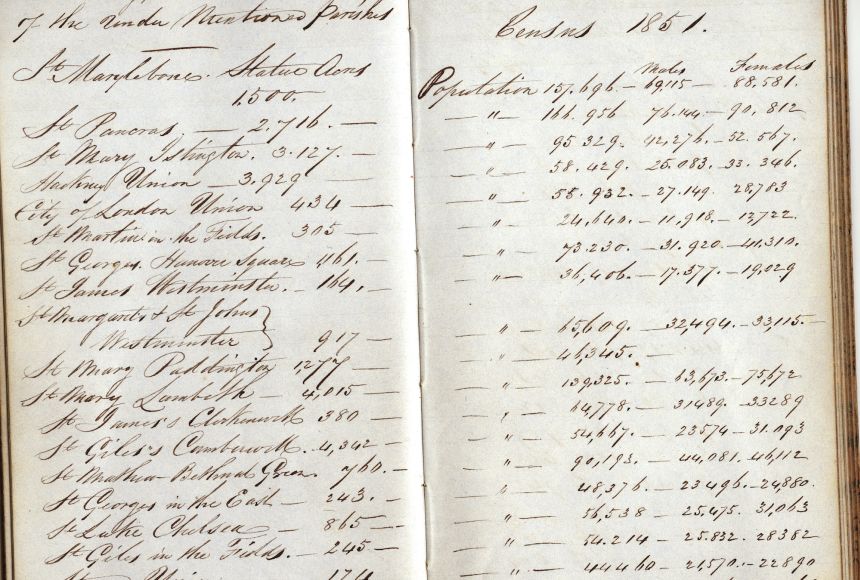 of the under Mentioned Parishes
St Marylebone. Statue Acres
1.500.
St Pancras — 2.716. —
St Mary Islington. 3.127. —
Hackney Union — 3.929 —
City of London Union 434 —
St Martin in the Fields. 305 —
St Georges Hanover Square 1,161. —
St James Westminster. — 164, —
St Margarets & St Johns
Westminster } 917 —
St Mary Paddington 1,277 —
St Mary Lambeth — 4,015 —
St James's Clerkenwell 380 —
St Giles's Camberwell. 4,342 —
St Mathew Bethnal Green. 760. —
St Georges in the East — 243. —
St Luke Chelsea — 865 —
St Giles in the Fields. — 245 —
Union 174
Census 1851.
Males Females
Population 157.696. — 69,115 — 88.581.
— " — 166.956 76.144 — 90,812
— " — 95.329. 42,276. — 52.567.
— " — 58.429. 25.083. — 33.346.
— " — 55.932. — 27.149. 28,783
— " — 24,640. — 11,918. — 12,722.
— " — 73.230. — 31.920 — 41.310.
— " — 36,406. — 17.377. — 19,029
— " — 65,609. — 32,494. — 33,115. —
— " — 46,345. —
— " — 139,325. — 63,673. — 75,672
— " — 64,778. — 31489. — 33289
— " — 54,667. — 23574 — 31.093
— " — 90,193. — 44,081. — 46,112
— " — 48,376. — 23496. — 24,880.
— " — 56,538 — 25.475. 31,063
— " — 54.214 — 25.832. 28382
— " — 44460 — 21,570. — 22890